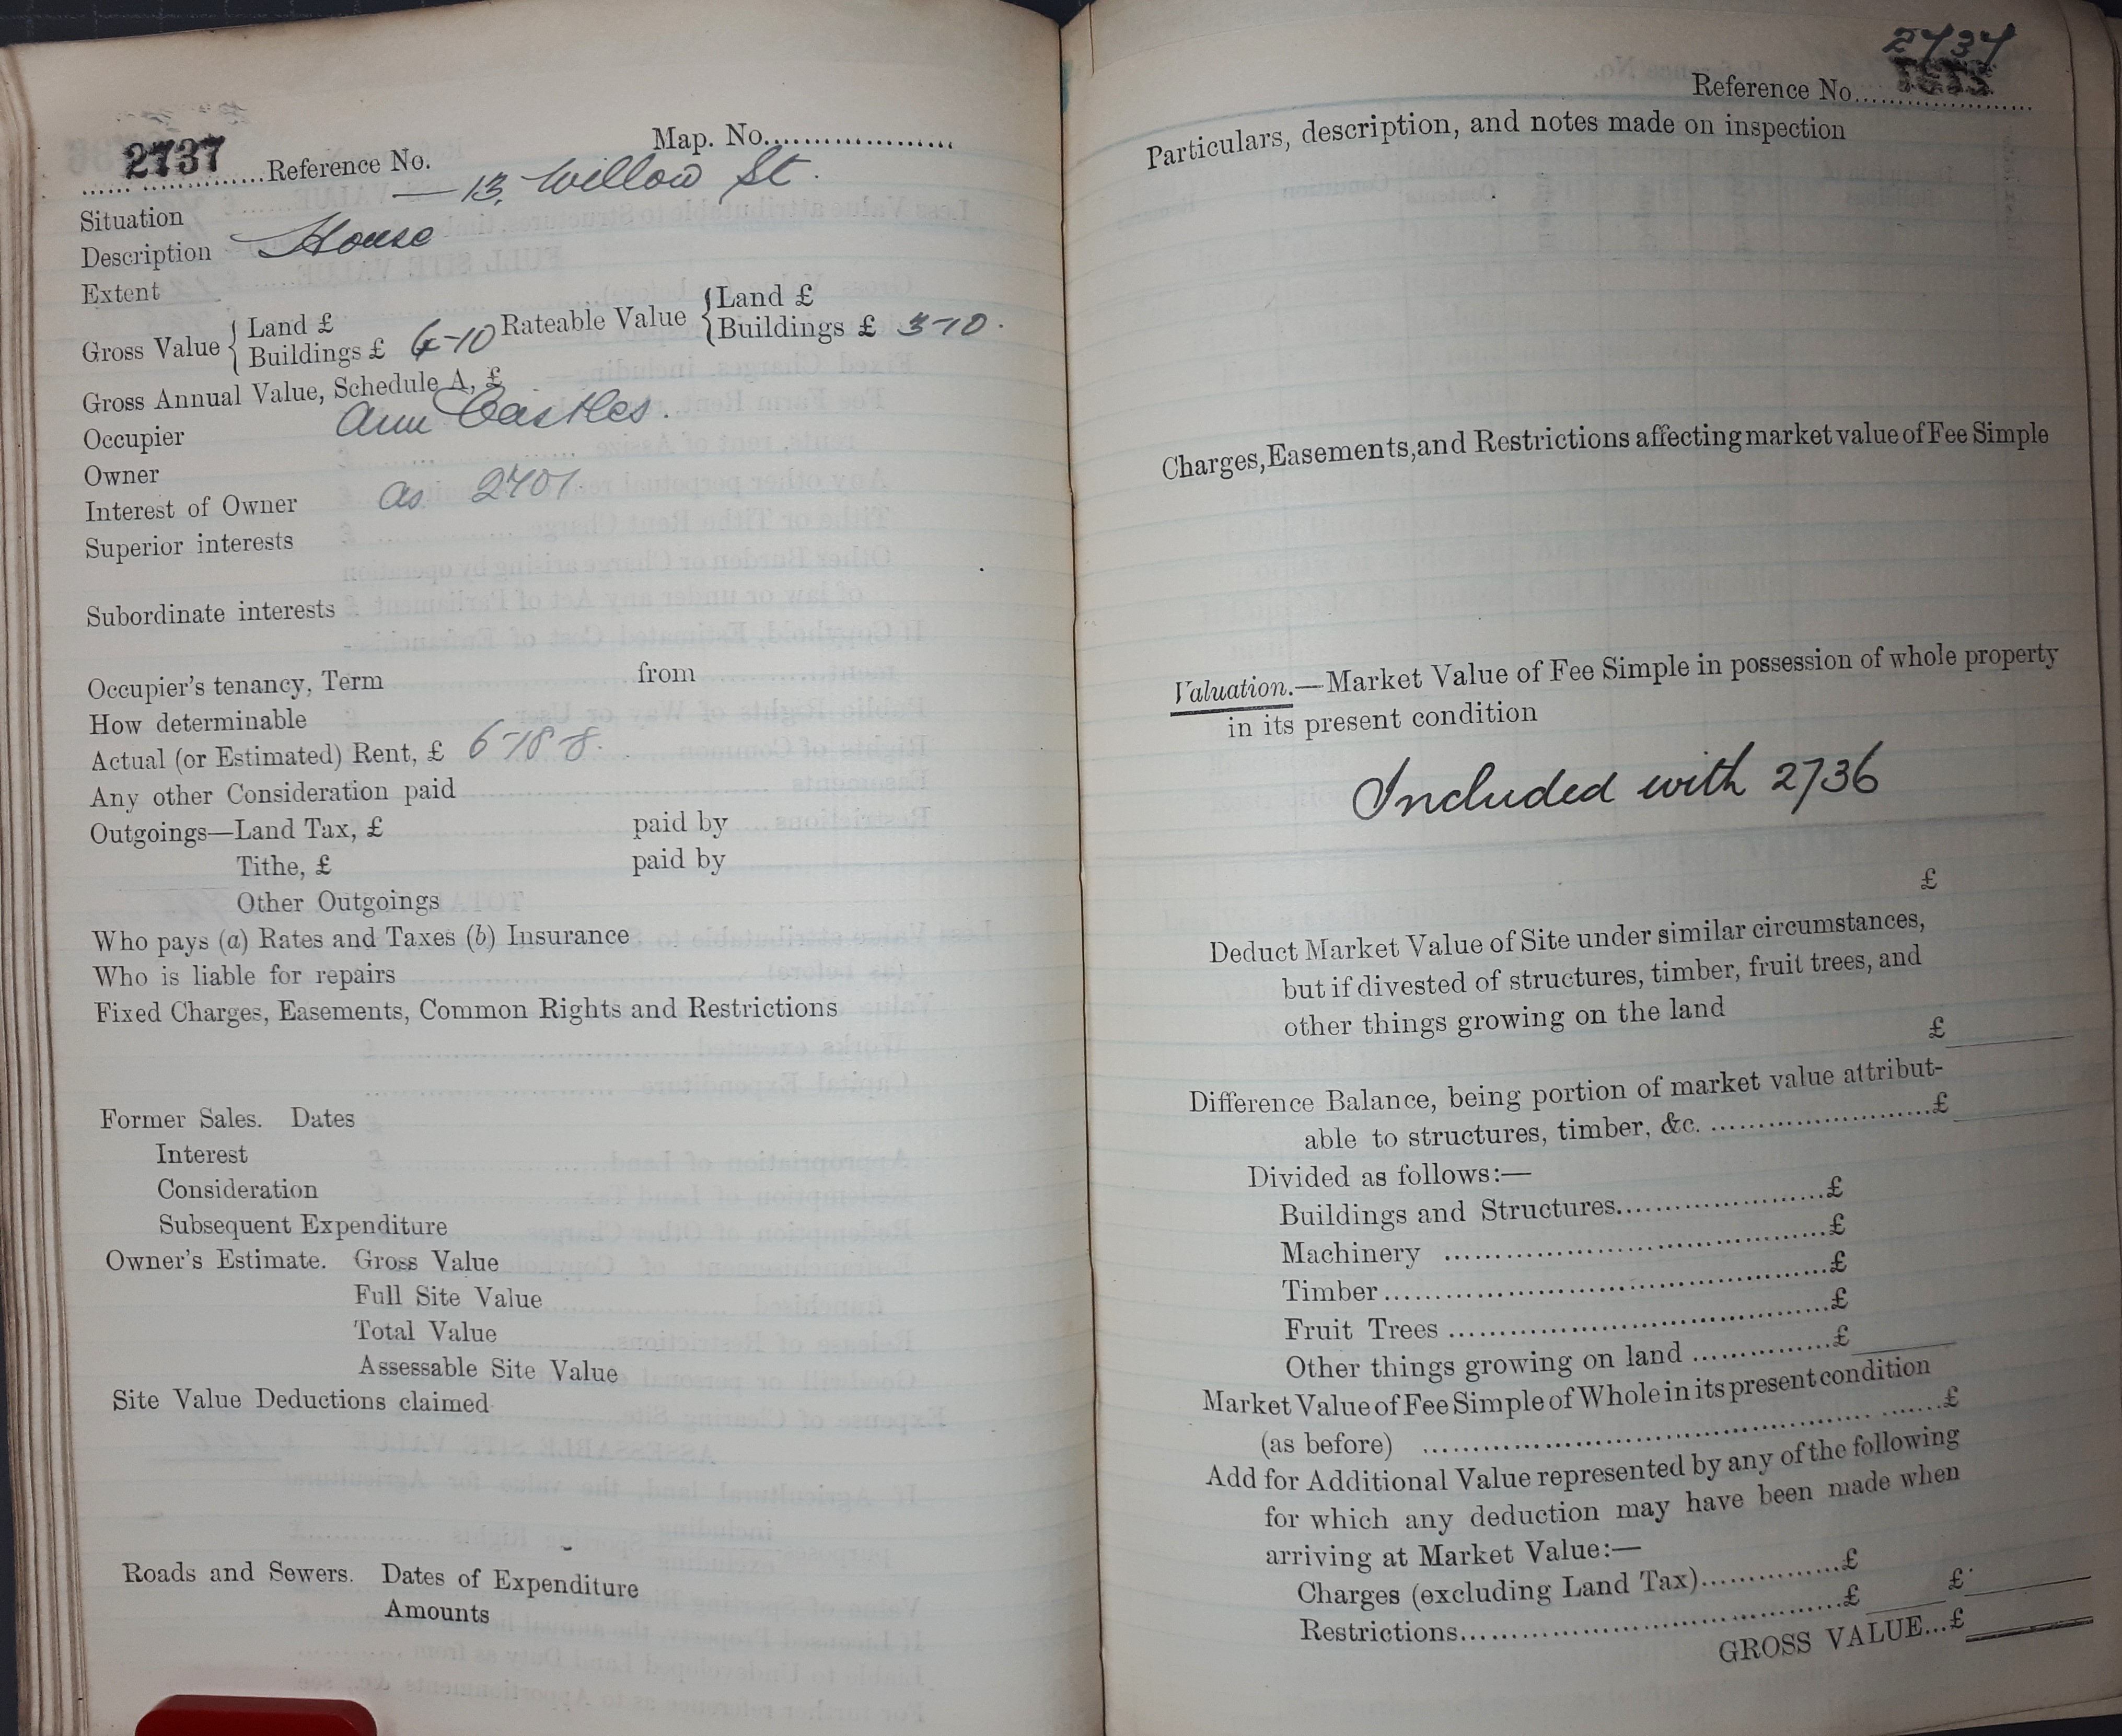 2737 Reference No. Map. No.
Situation — 13, Willow St.
Description House
Extent
Gross Value { Land £ Rateable Value { Land £
Buildings £ 4-10 Buildings £ 3-10.
Gross Annual Value, Schedule A, £
Occupier Ann Castles.
Owner
Interest of Owner as 2701.
Superior interests
Subordinate interests
Occupier's tenancy, Term from
How determinable
Actual (or Estimated) Rent, £ 6-18-8.
Any other Consideration paid
Outgoings—Land Tax, £ paid by
Tithe, £ paid by
Other Outgoings
Who pays (a) Rates and Taxes (b) Insurance
Who is liable for repairs
Fixed Charges, Easements, Common Rights and Restrictions
Former Sales. Dates
Interest
Consideration
Subsequent Expenditure
Owner's Estimate. Gross Value
Full Site Value
Total Value
Assessable Site Value
Site Value Deductions claimed
Roads and Sewers. Dates of Expenditure
Amounts
2737
Reference No.
Particulars, description, and notes made on inspection
Charges, Easements, and Restrictions affecting market value of Fee Simple
Valuation.—Market Value of Fee Simple in possession of whole property
in its present condition
Included with 2736
£
Deduct Market Value of Site under similar circumstances,
but if divested of structures, timber, fruit trees, and
other things growing on the land
£
Difference Balance, being portion of market value attribut-
able to structures, timber, &c. £
Divided as follows:—
Buildings and Structures £
Machinery £
Timber £
Fruit Trees £
Other things growing on land £
Market Value of Fee Simple of Whole in its present condition
(as before) £
Add for Additional Value represented by any of the following
for which any deduction may have been made when
arriving at Market Value:—
Charges (excluding Land Tax) £
Restrictions £ £
GROSS VALUE...£